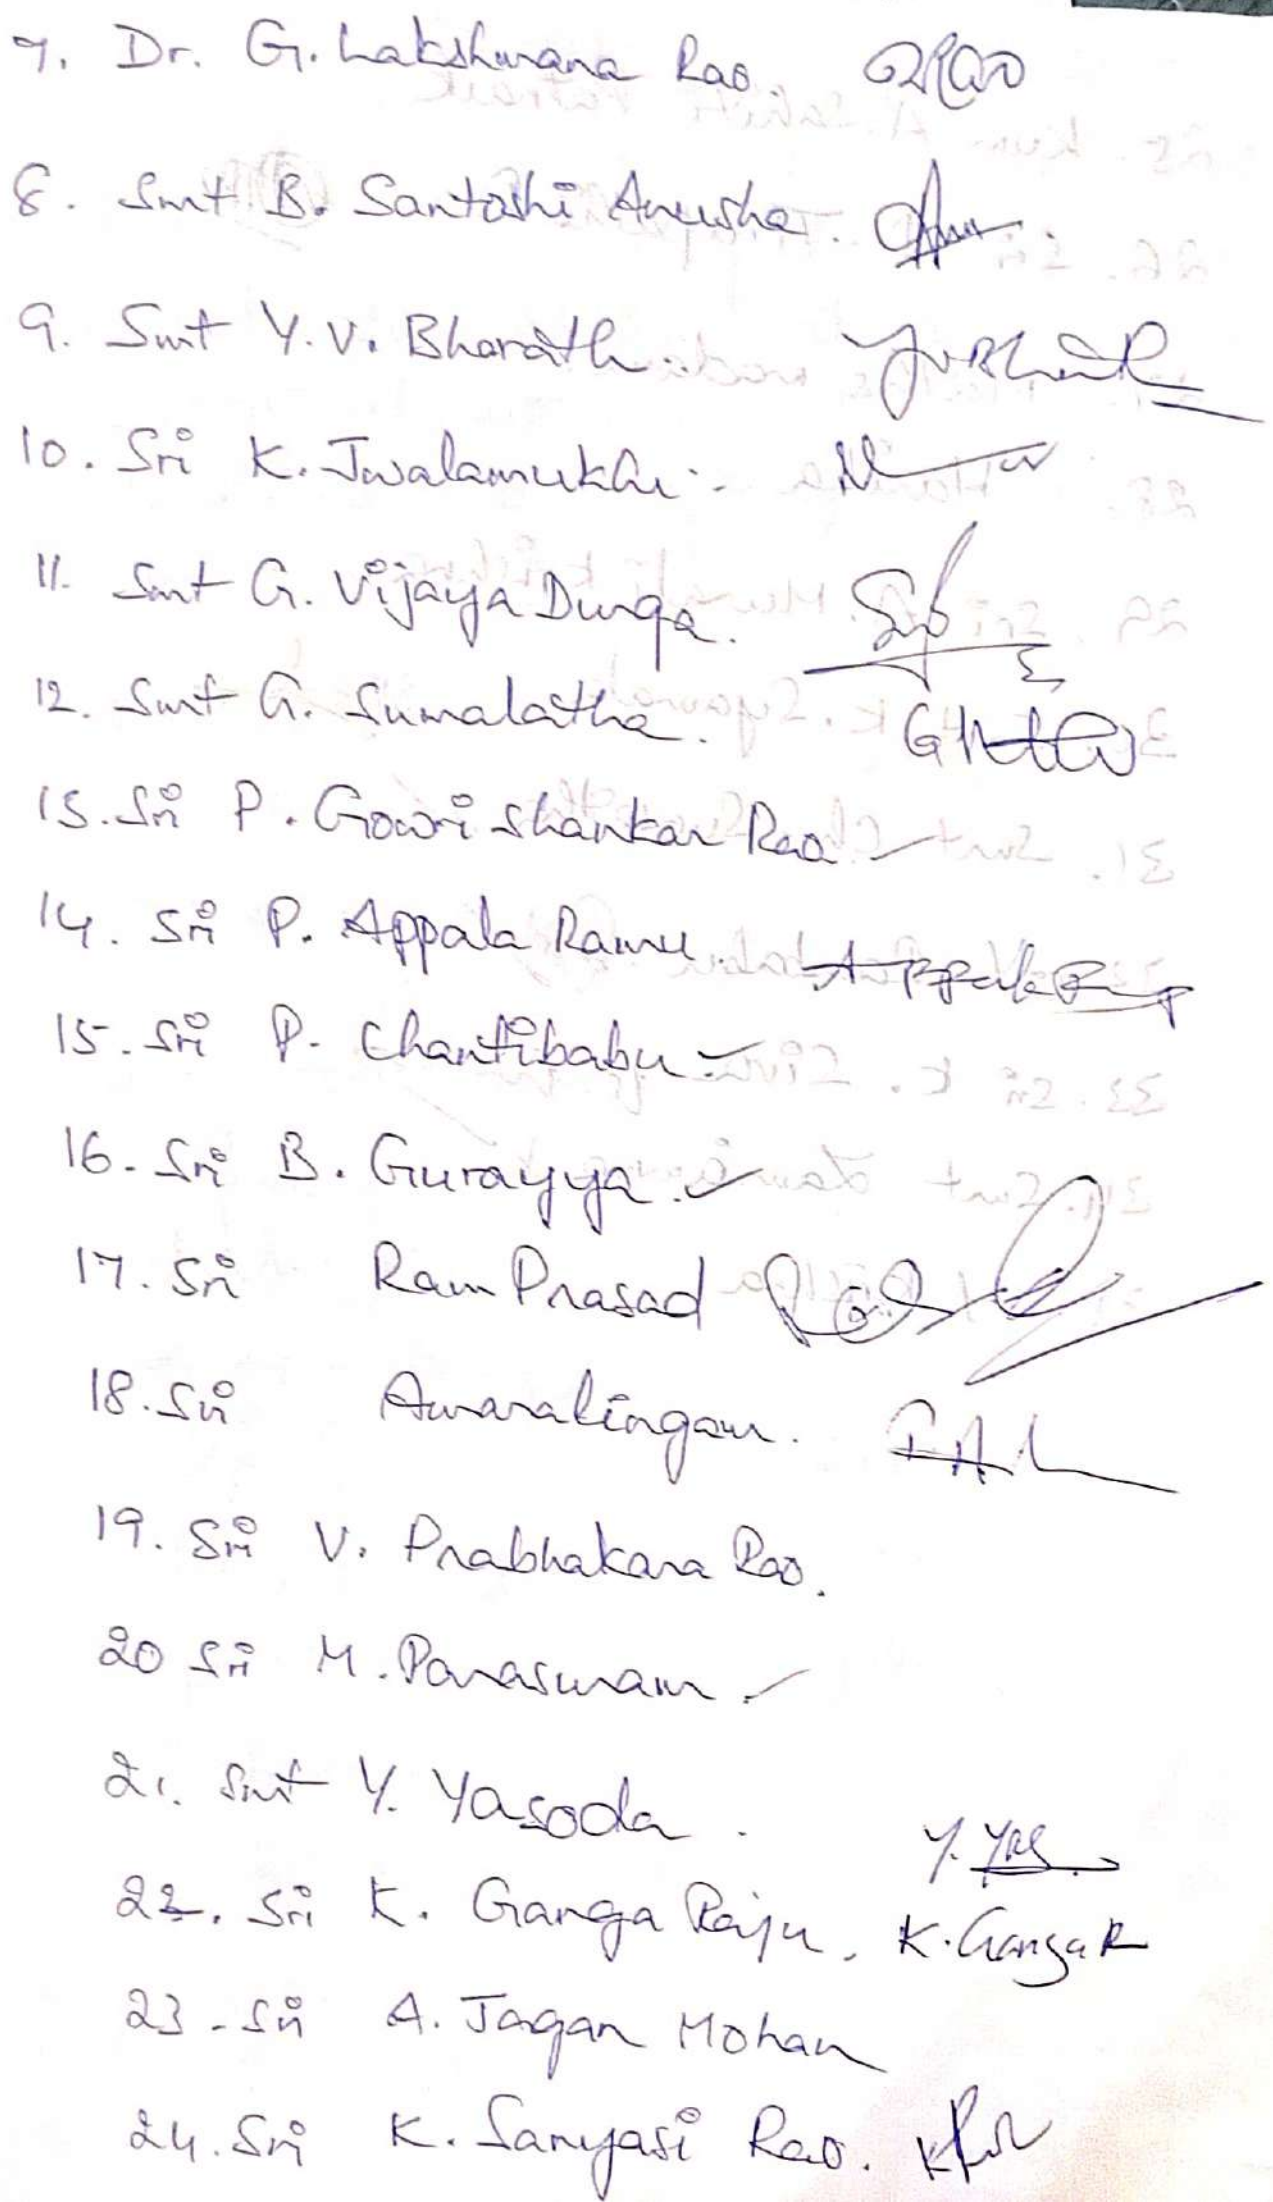 7. Dr. G. Lakshmana Rao.
8. Smt B. Santoshi Anusha.
9. Smt Y.V. Bharathi. YVBharathi
10. Sri K. Jwalamukhi.
11. Smt G. Vijaya Durga.
12. Smt G. Sumalatha.
13. Sri P. Gowri Shankar Rao
14. Sri P. Appala Ramu.
15. Sri P. Chantibabu
16. Sri B. Gurayya.
17. Sri Ram Prasad
18. Sri Amaralingam.
19. Sri V. Prabhakara Rao.
20 Sri M. Parasuram.
21. Smt Y. Yasoda. Y. Yas
22. Sri K. Ganga Raju. K. Ganga R
23. Sri A. Jagan Mohan
24. Sri K. Sanyasi Rao.